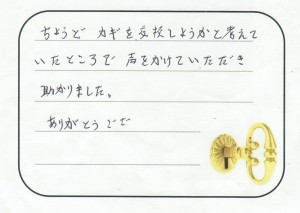 ちょうど カギを交換しようかと考えて
いたところで 声をかけていただき
助かりました。
ありがとうござ